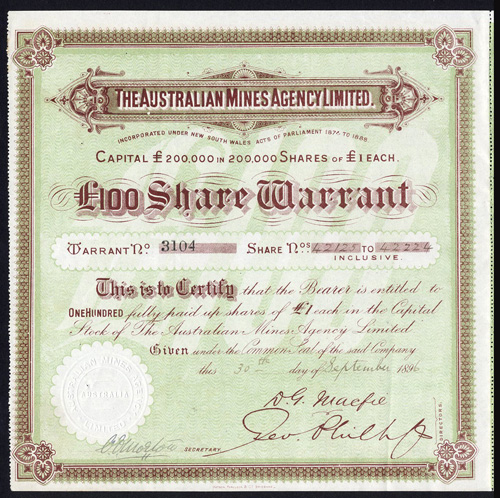 THE AUSTRALIAN MINES AGENCY LIMITED.
INCORPORATED UNDER NEW SOUTH WALES ACTS OF PARLIAMENT 1874 TO 1888
CAPITAL £200,000 IN 200,000 SHARES OF £1 EACH.
£100 Share Warrant
WARRANT No. 3104 SHARE Nos. 42125 TO 42224
INCLUSIVE.
This is to Certify that the Bearer is entitled to
ONE HUNDRED fully paid up shares of £1 each in the Capital
Stock of The Australian Mines Agency Limited
Given under the Common Seal of the said Company
this 30th day of September 1896
D. G. Macfie
Geo. Phillip Jr
SECRETARY.
DIRECTORS.
AUSTRALIA
LIMITED